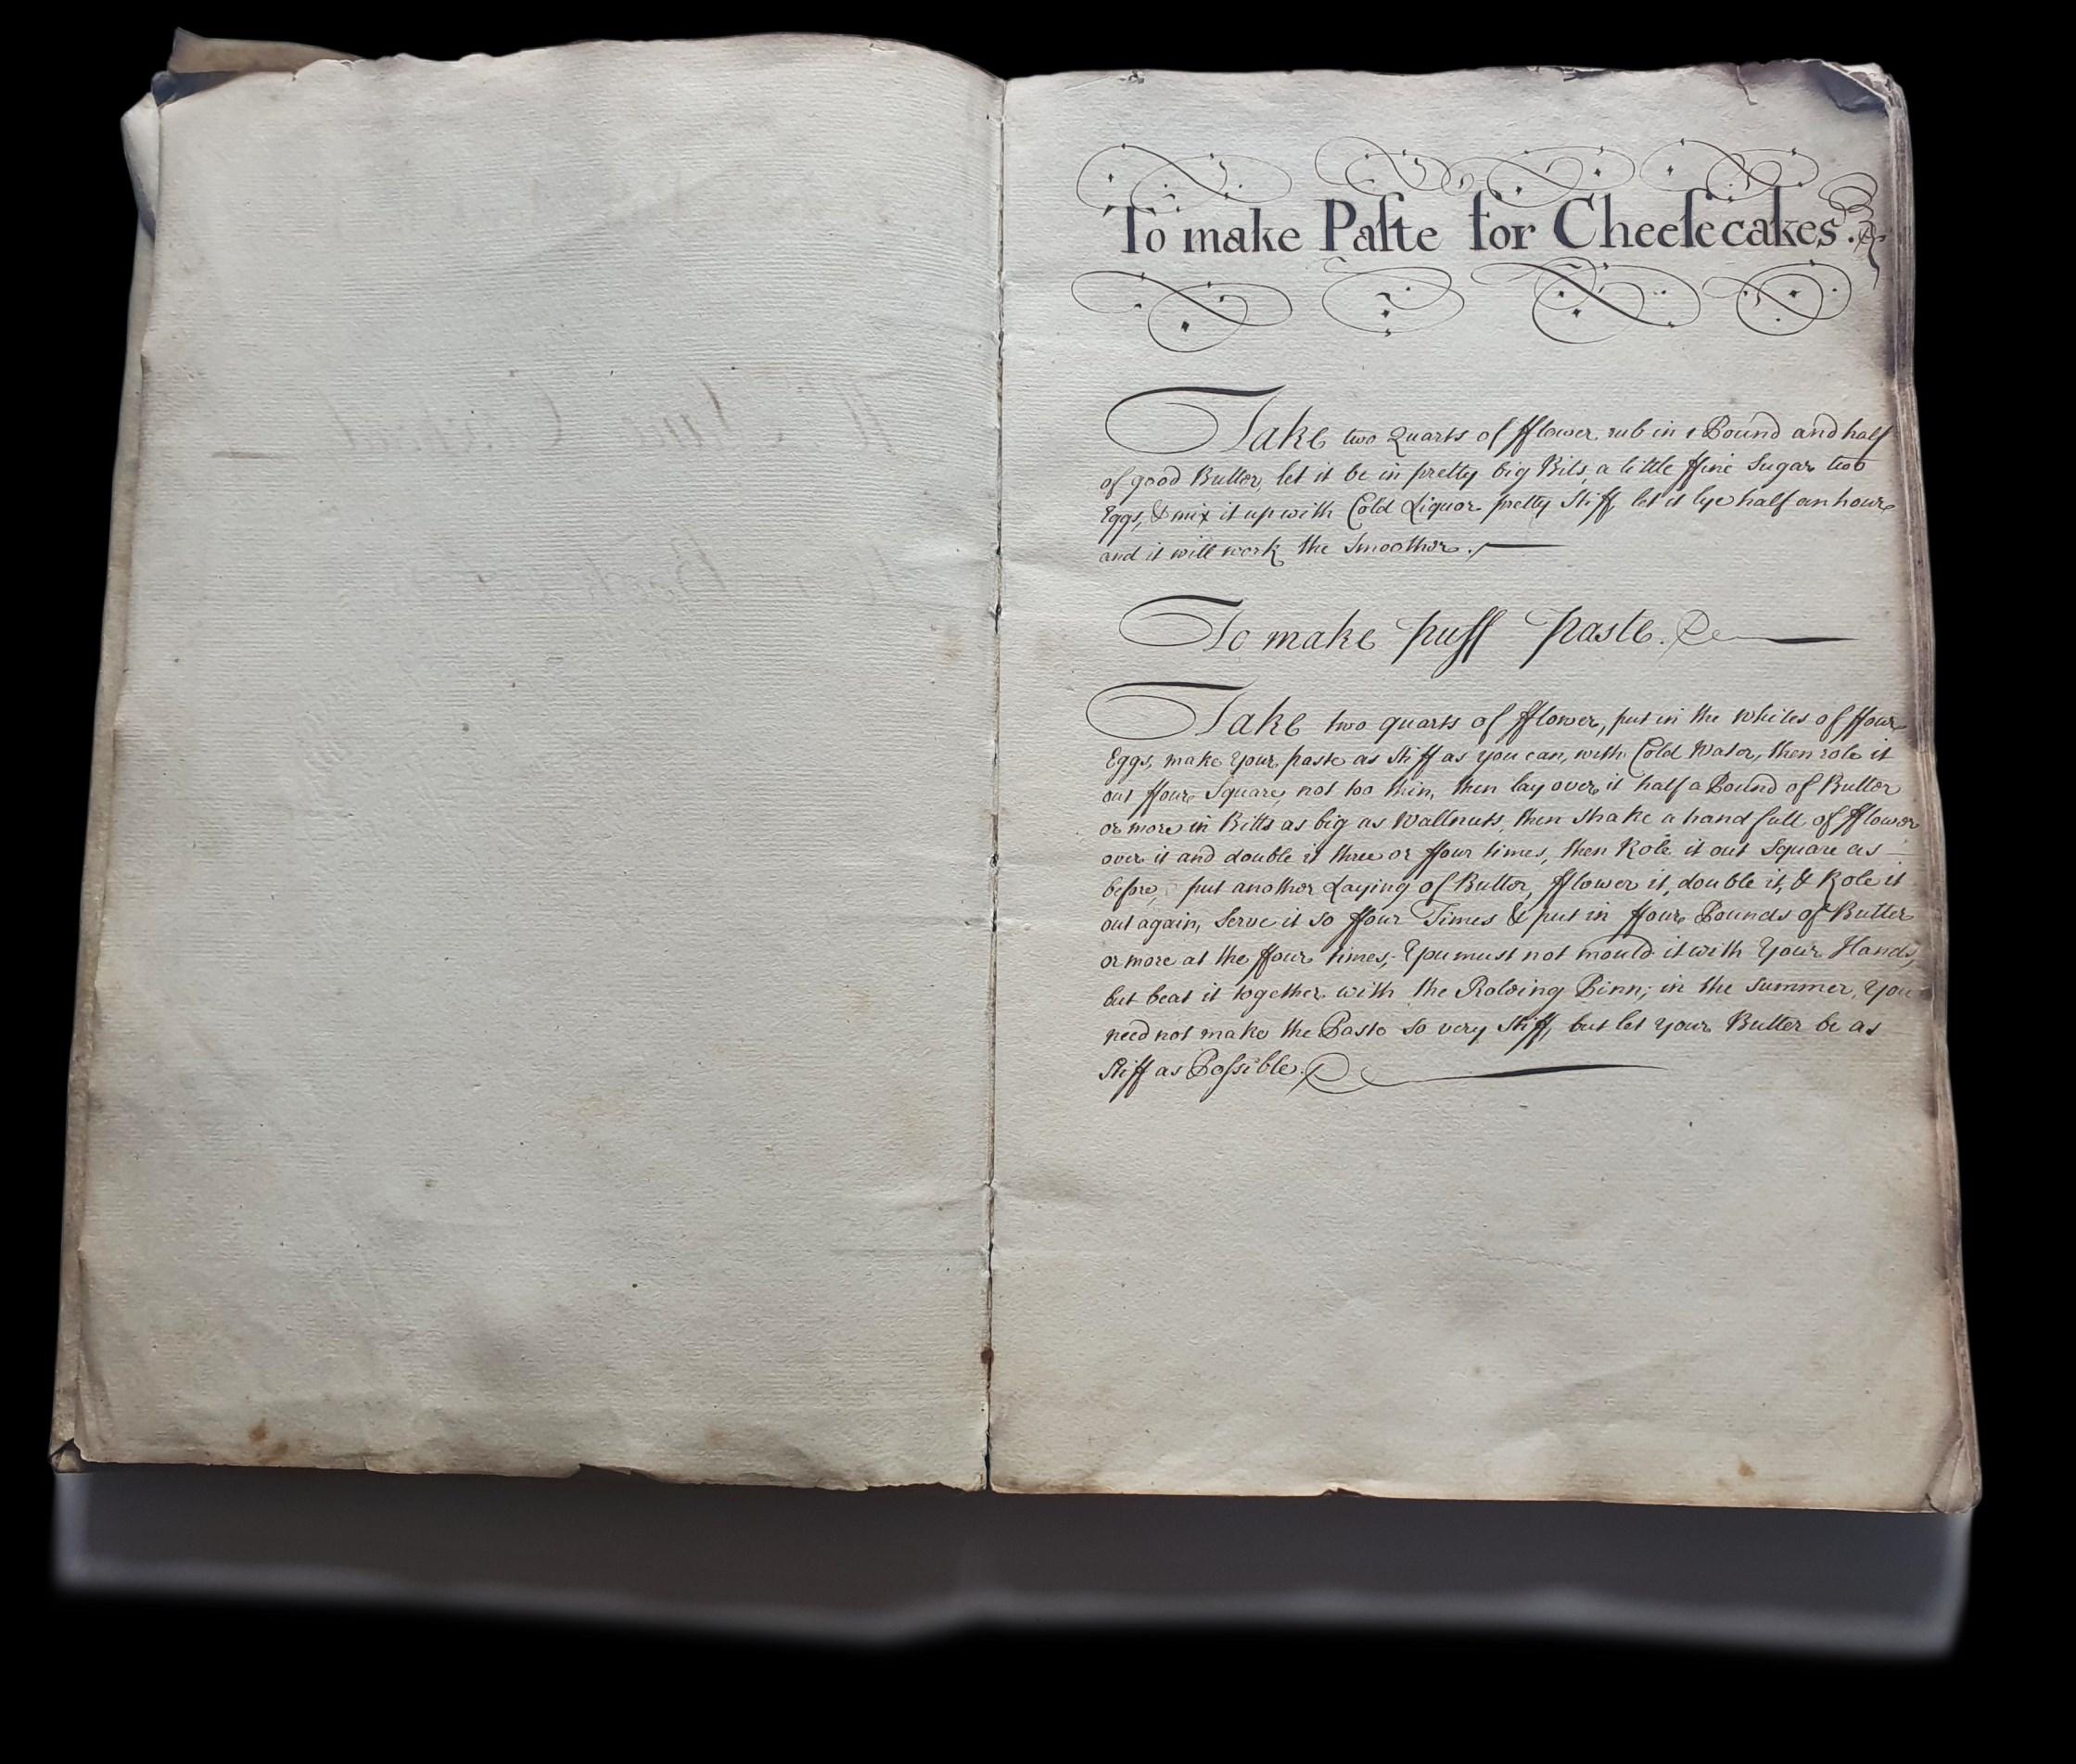 To make Paſte for Cheeſecakes.
Take two Quarts of fflower rub in 1 Pound and half
of good Butter, let it be in pretty big Bits, a little ffine Sugar two
Eggs, & mix it up with Cold Liquor pretty Stiff, let it lye half an hour
and it will work the Smoother.
To make puff paste.
Take two quarts of fflower, put in the whites of ffour
Eggs, make your paste as stiff as you can, with Cold Water, then role it
out ffour Square, not too thin, then lay over it half a Pound of Butter
or more in Bitts as big as Wallnuts, then shake a hand full of fflower
over it and double it three or ffour times, then Role it out Square as
before, put another Laying of Butter, fflower it, double it, & Role it
out again, Serve it so ffour Times & put in ffour Pounds of Butter
or more at the ffour times; You must not mould it with Your Hands,
but beat it together with the Roleing Pinn; in the summer, You
need not make the Paste so very stiff, but let your Butter be as
Stiff as Poſsible.